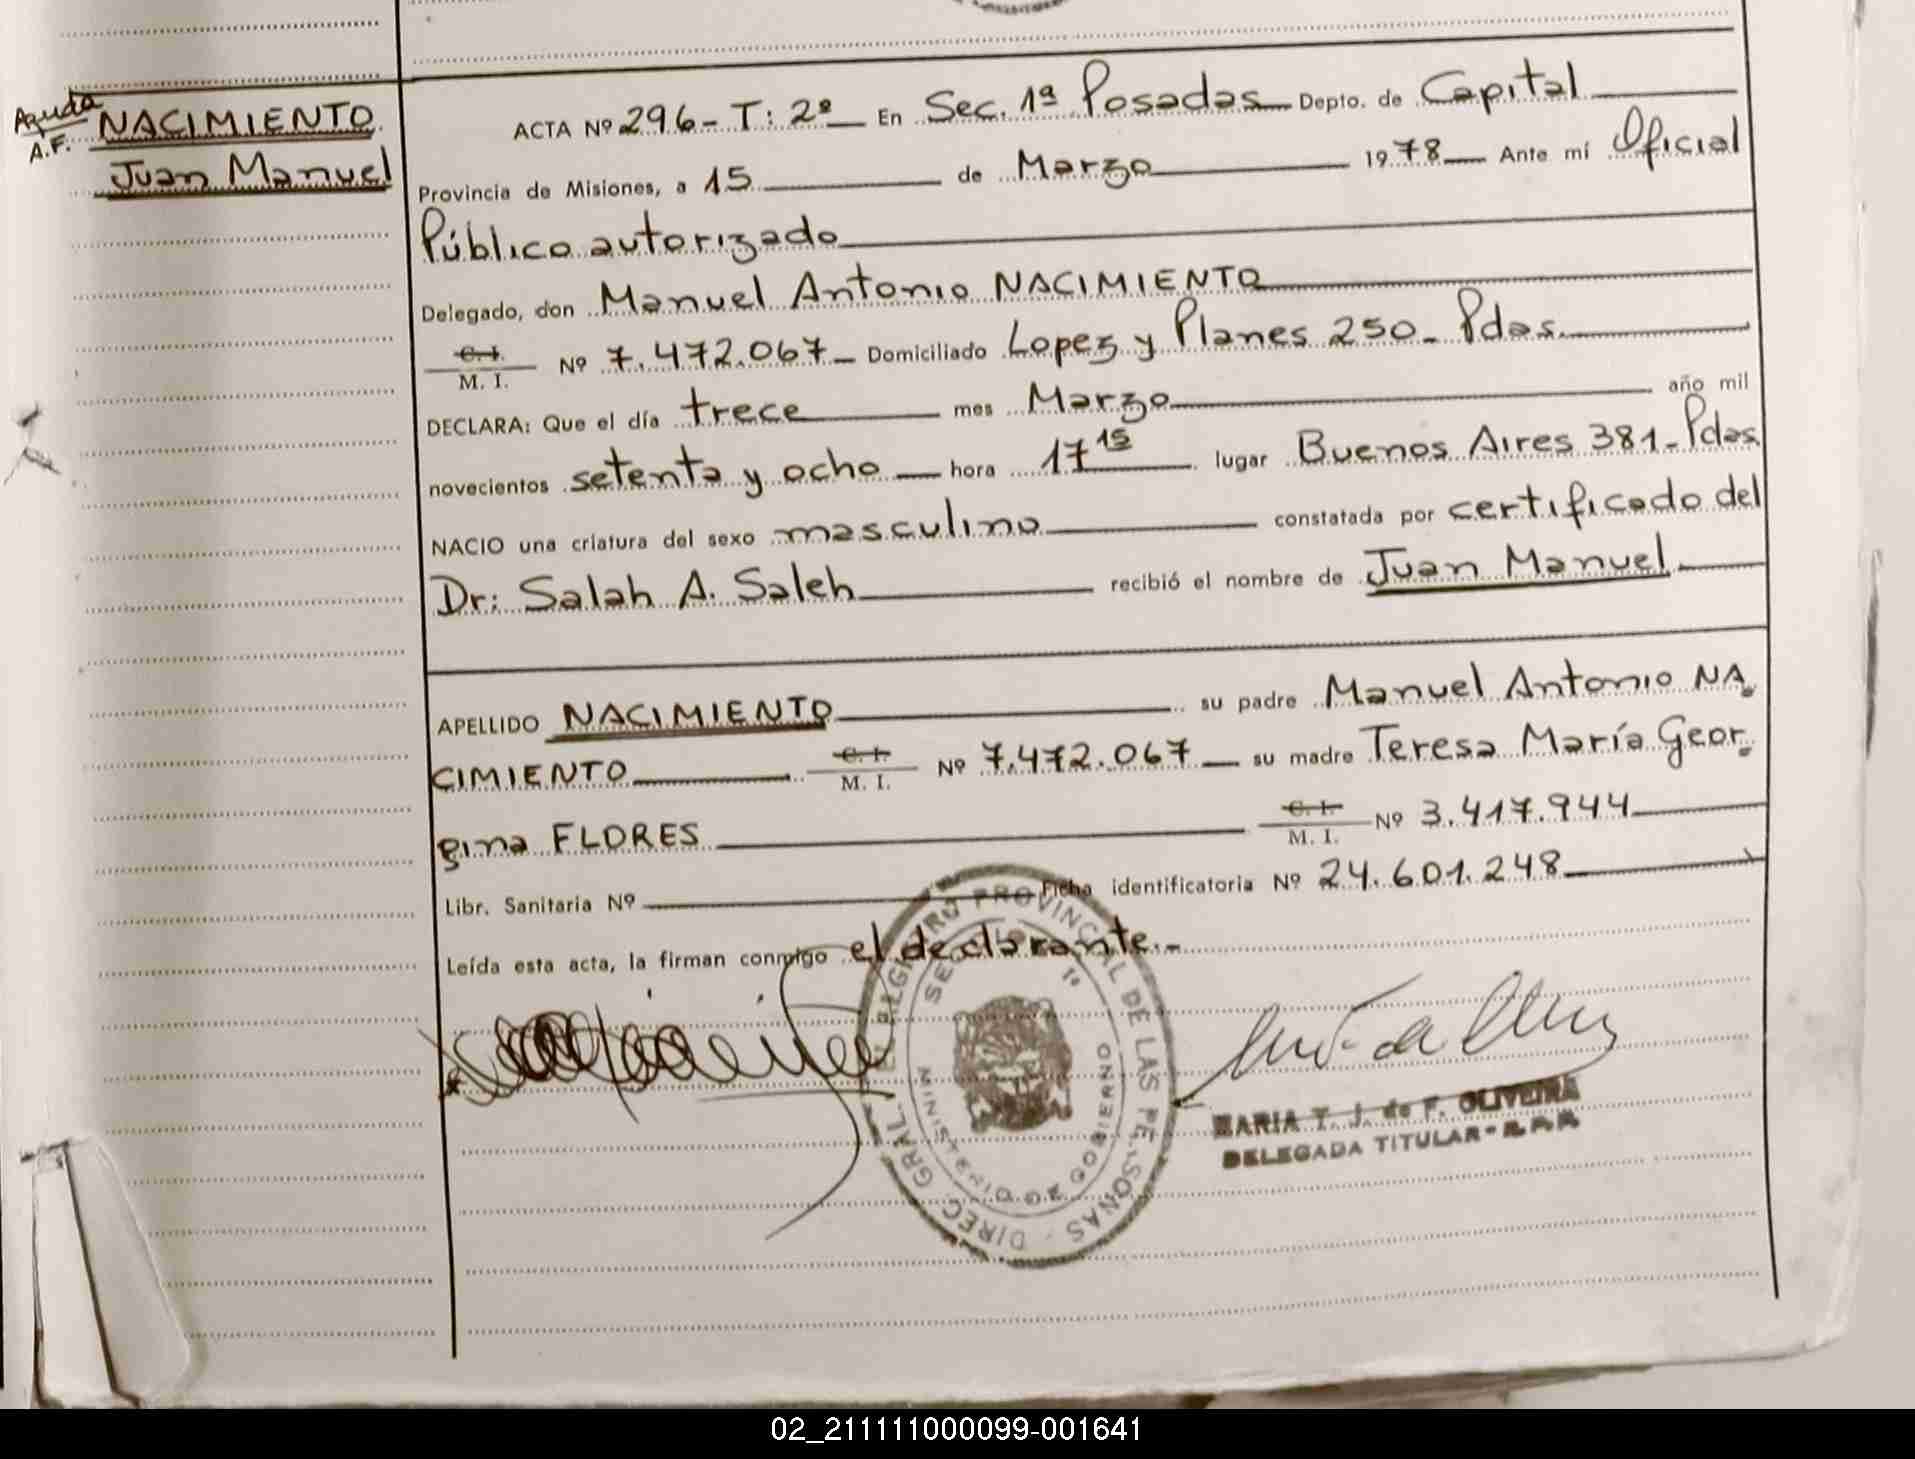 Ayuda
A.F.
NACIMIENTO
Juan Manuel
ACTA Nº 296- T: 2º En Sec. 1ª Posadas Depto. de Capital
Provincia de Misiones, a 15 de Marzo 1978 Ante mí Oficial
Público autorizado
Delegado, don Manuel Antonio NACIMIENTO
C. I. M. I. Nº 7.472.067 Domiciliado Lopez y Planes 250- Pdas.
DECLARA: Que el día trece mes Marzo año mil
novecientos setenta y ocho hora 17 15 lugar Buenos Aires 381- Pdas.
NACIO una criatura del sexo masculino constatada por certificado del
Dr: Salah A. Saleh recibió el nombre de Juan Manuel
APELLIDO NACIMIENTO su padre Manuel Antonio NA
CIMIENTO C. I. M. I. Nº 7.472.067 su madre Teresa María Geor
gina FLORES C. I. M. I. Nº 3.417.944
Libr. Sanitaria Nº Ficha identificatoria Nº 24.601.248
Leída esta acta, la firman conmigo el declarante.-
DIREC. GRAL. DEL REGISTRO PROVINCIAL DE LAS PERSONAS
MINISTERIO DE GOBIERNO
1º
MARIA T. J. de F. OLIVEIRA
DELEGADA TITULAR - R.P.P.
02_211111000099-001641